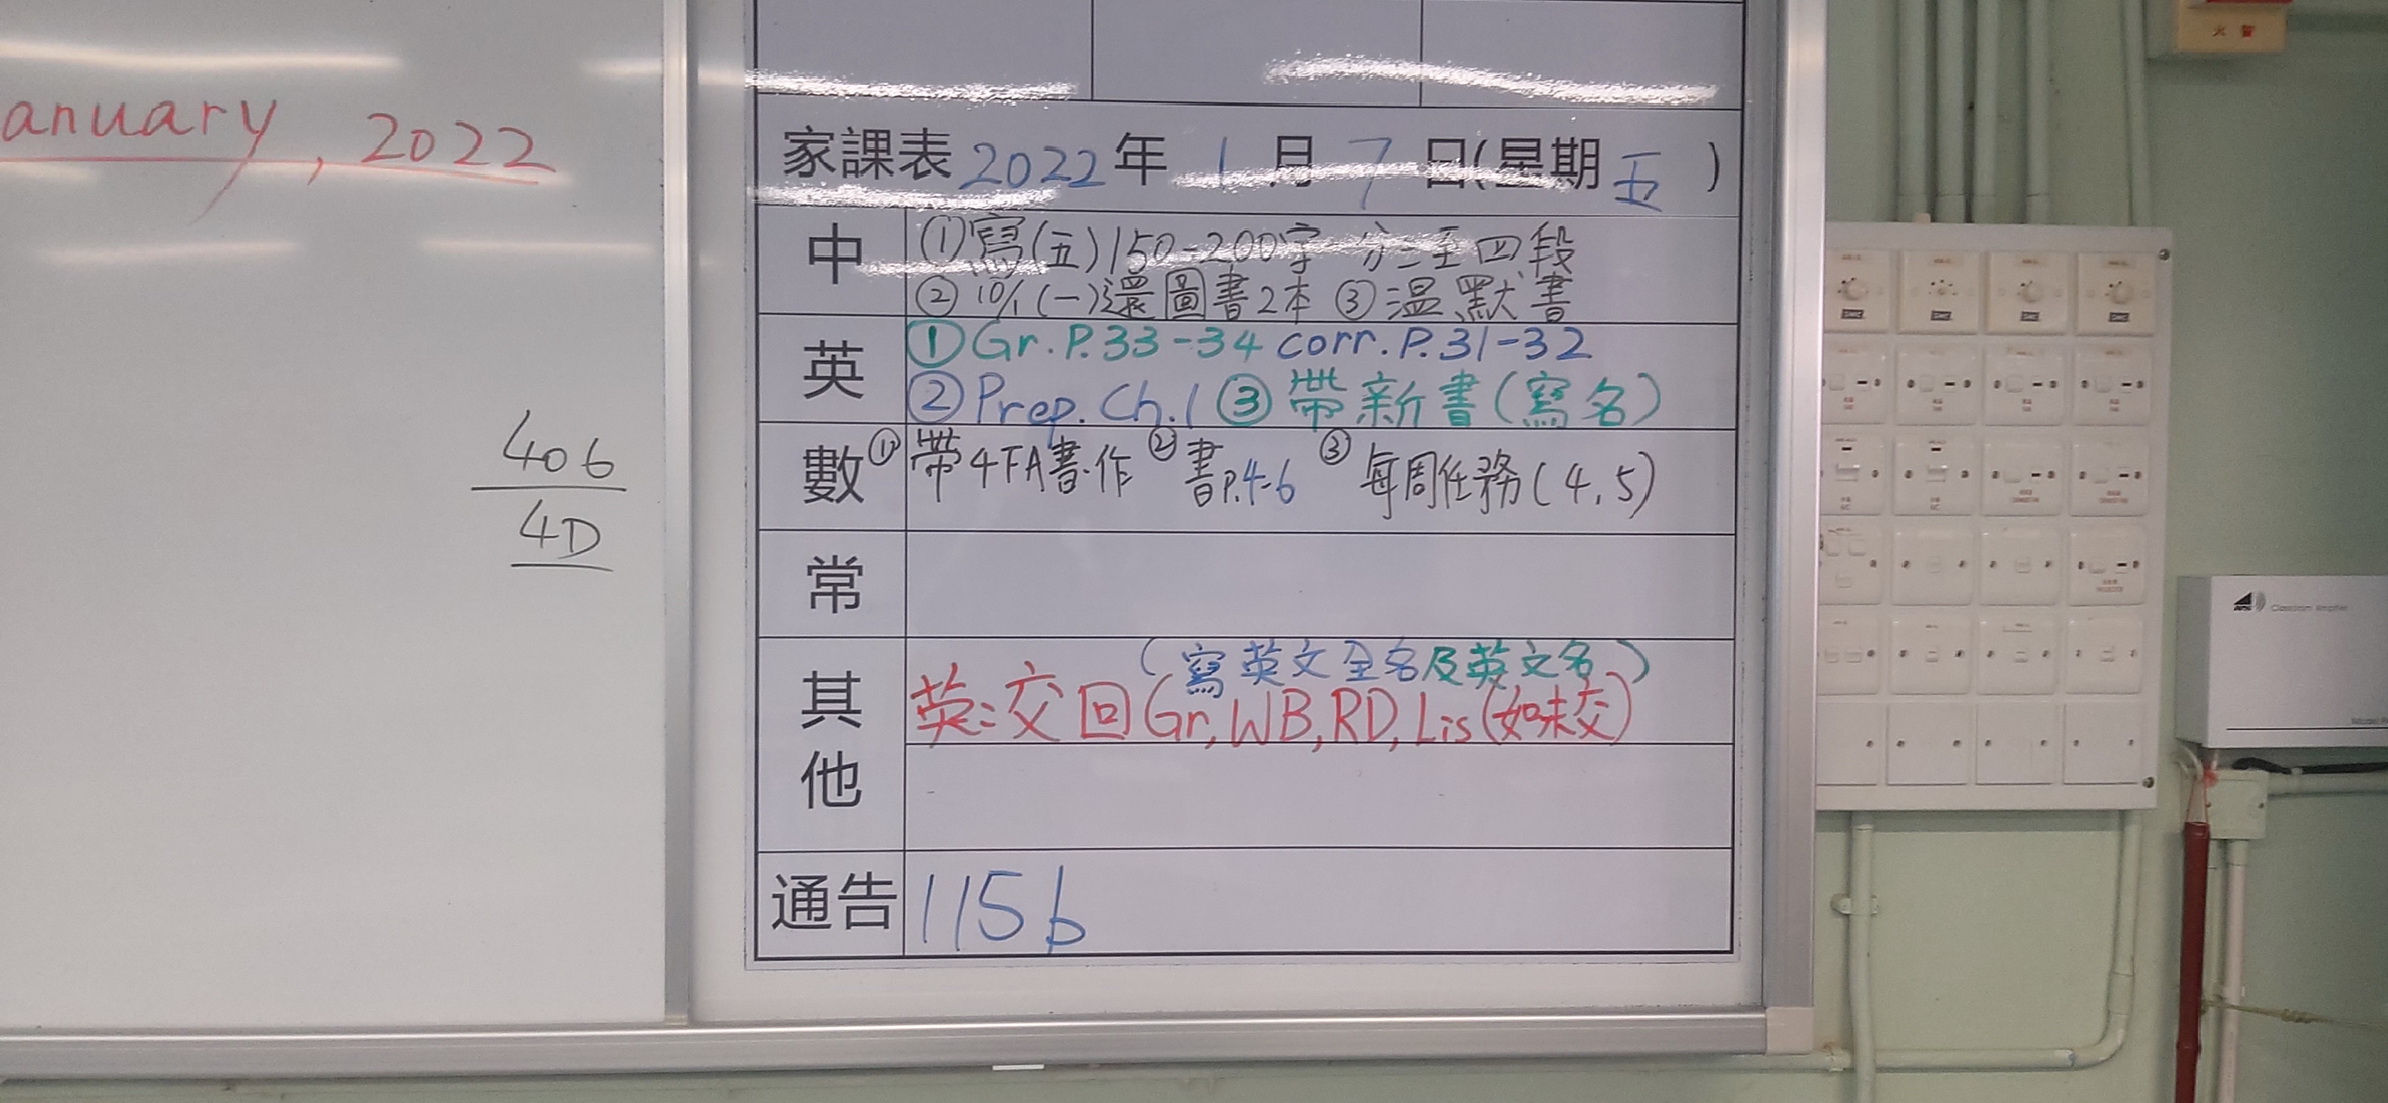 anuary, 2022
406
4D
家課表 2022年 1月 7日(星期五)
中
①寫(五)150-200字 分三至四段
②10/1(一)還圖書2本 ③溫默書
英
①Gr.P.33-34 corr.P.31-32
②Prep.Ch.1 ③帶新書(寫名)
數
①帶4下A書.作 ②書P.4-6 ③每周任務(4,5)
常
其他
(寫英文全名及英文名)
英:交回Gr,WB,RD,Lis(如未交)
通告
115b
火警
Classroom Amplifier